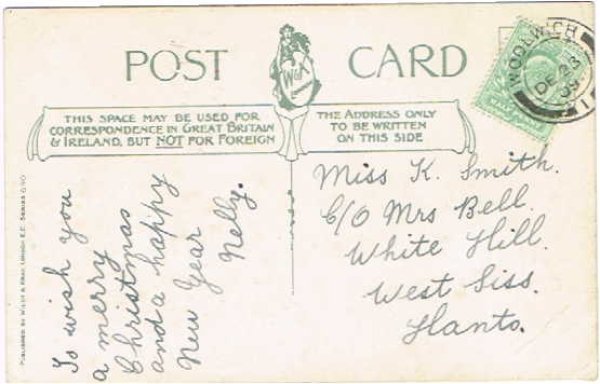 POST CARD
W & K
LONDON
THIS SPACE MAY BE USED FOR
CORRESPONDENCE IN GREAT BRITAIN
& IRELAND, BUT NOT FOR FOREIGN
THE ADDRESS ONLY
TO BE WRITTEN
ON THIS SIDE
WOOLWICH
DE 23
HALFPENNY
Miss K. Smith.
C/O Mrs Bell.
White Hill.
West Liss.
Hants.
To wish you
a merry
Christmas
and a happy
New Year
Nelly.
PUBLISHED BY WILDT & KRAY, LONDON E.C. SERIES